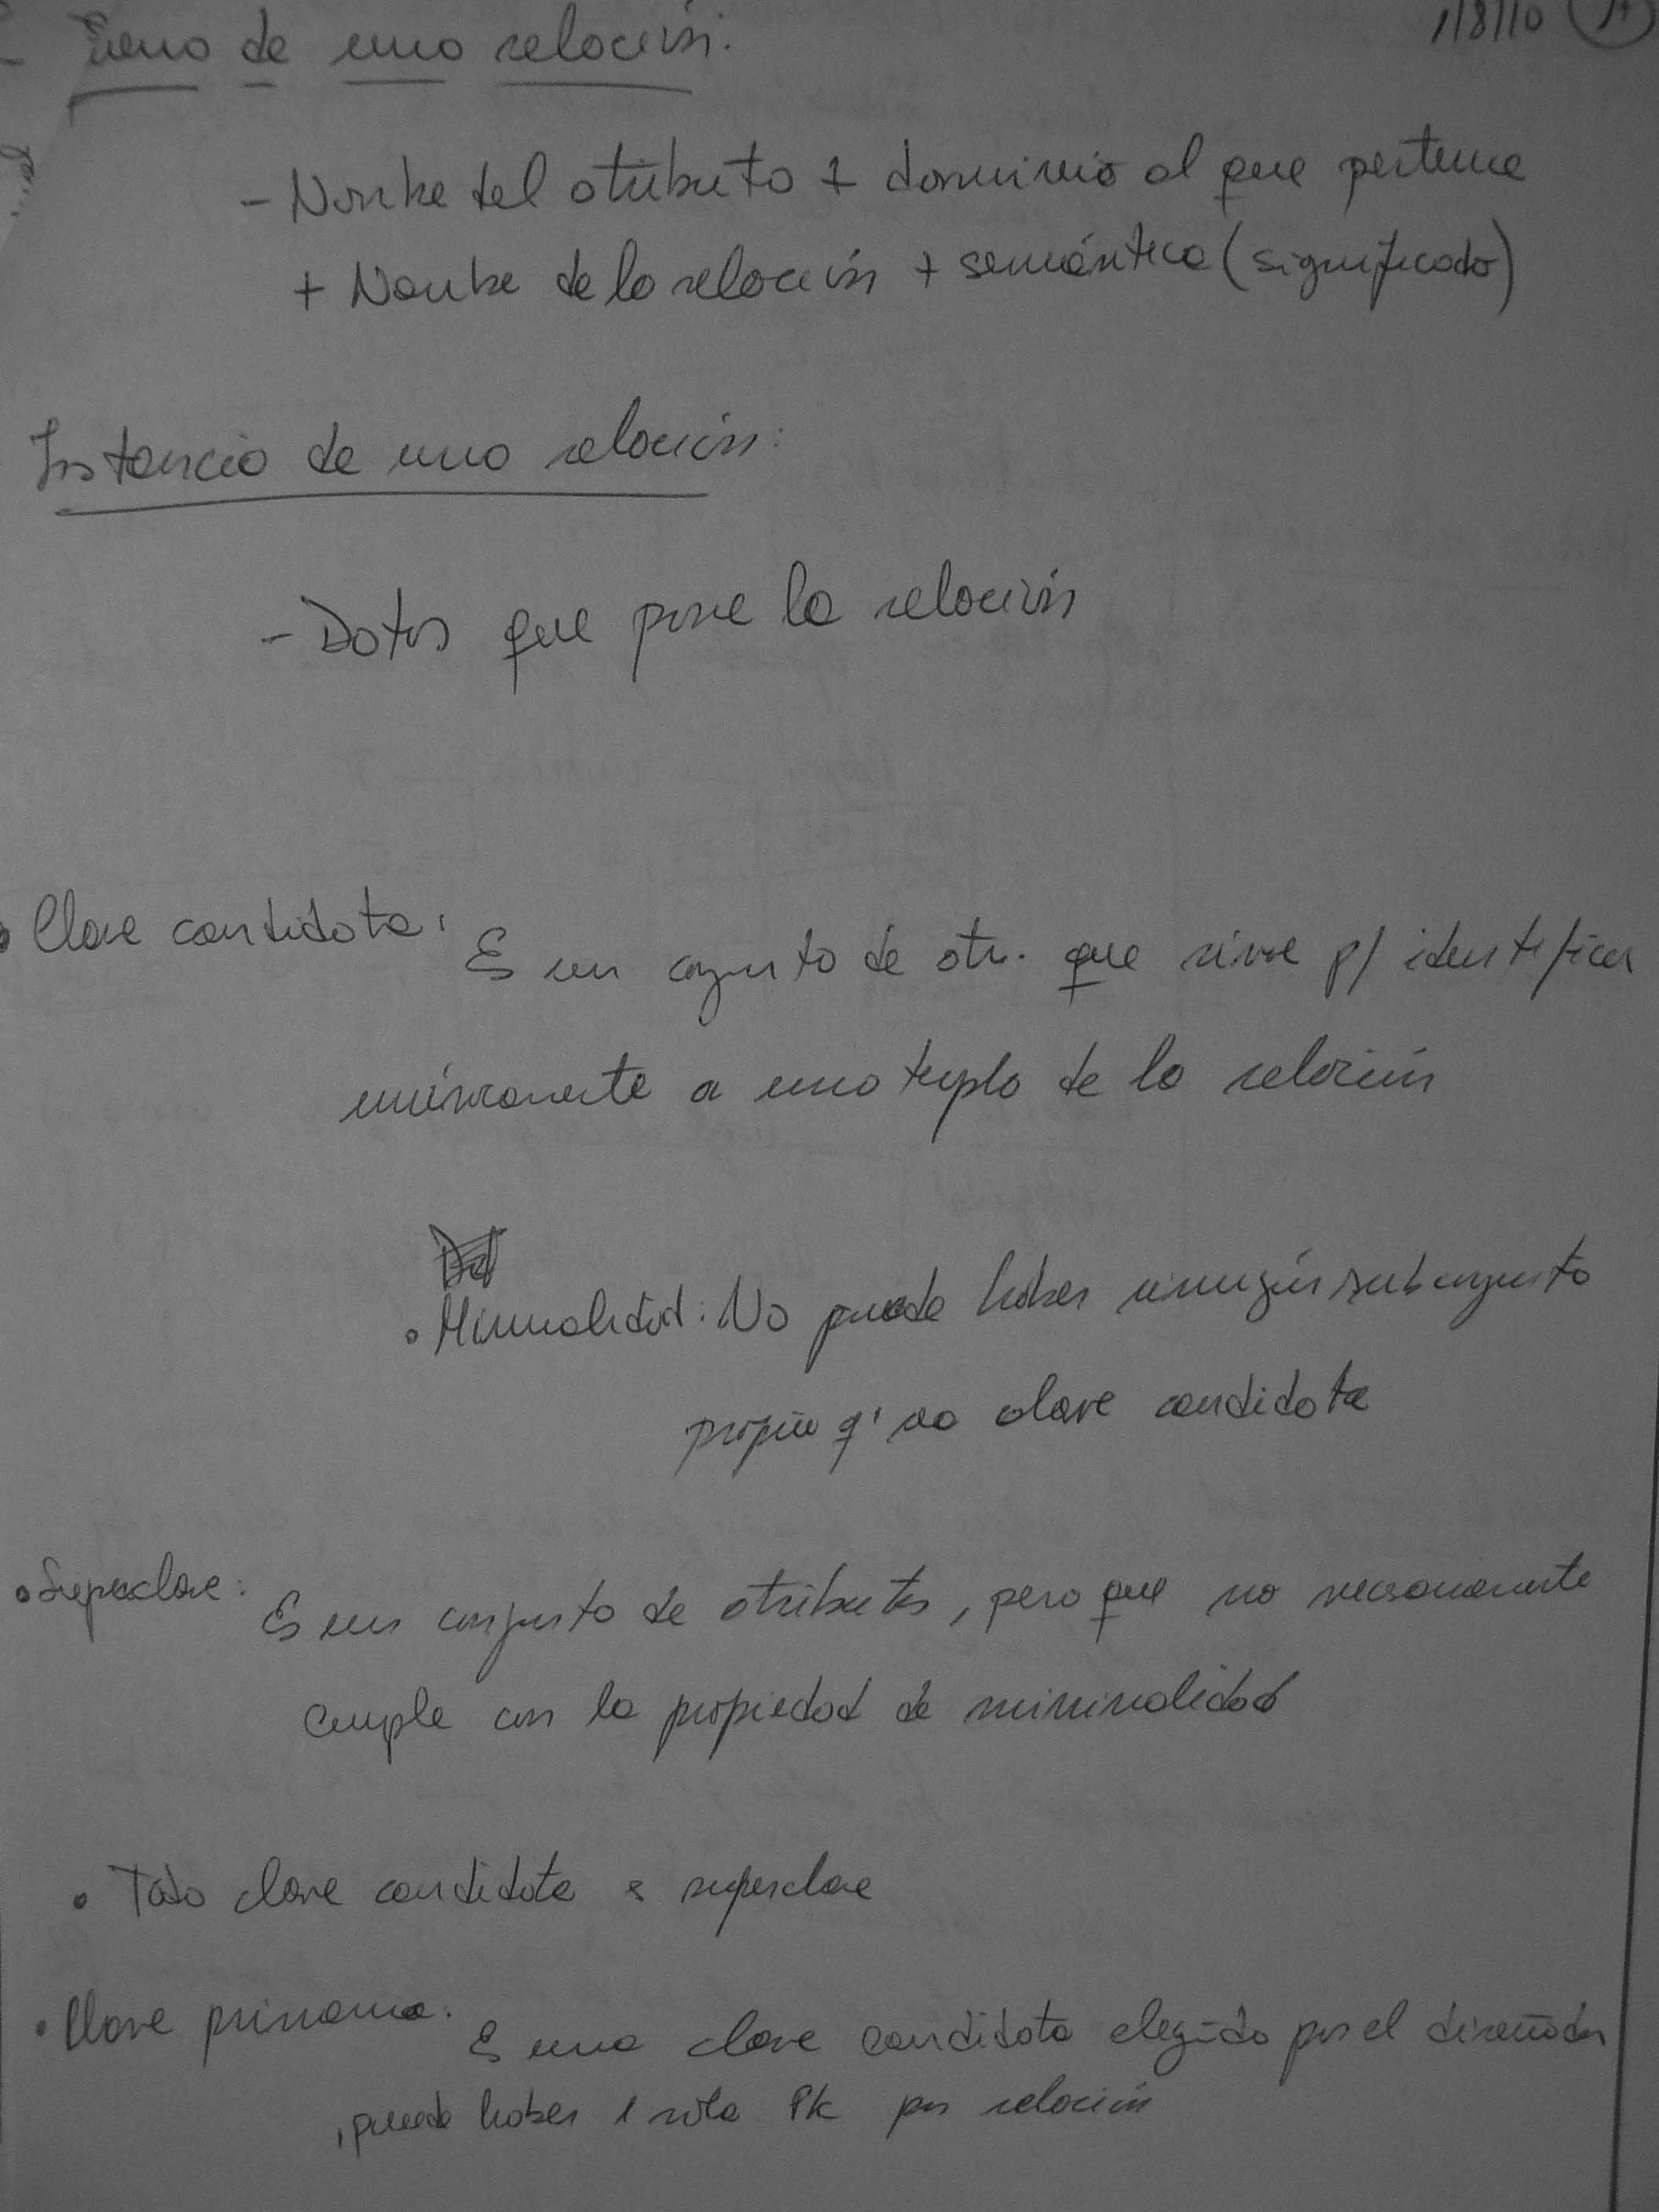 de una relación. 1/8/10
- Nombre del atributo + dominio al que pertenece
+ Nombre de la relación + semántica (significado)
Instancia de una relación:
- Datos que posee la relación
Clave candidata: Es un conjunto de atr. que sirve p/ identificar
unívocamente a una tupla de la relación
• Minimalidad: No puede haber ningún subconjunto
propio q' sea clave candidata
• Superclave: Es un conjunto de atributos, pero que no necesariamente
cumple con la propiedad de minimalidad
• Toda clave candidata es superclave
• Clave primaria: Es una clave candidata elegida por el diseñador
, puede haber 1 sola PK por relación